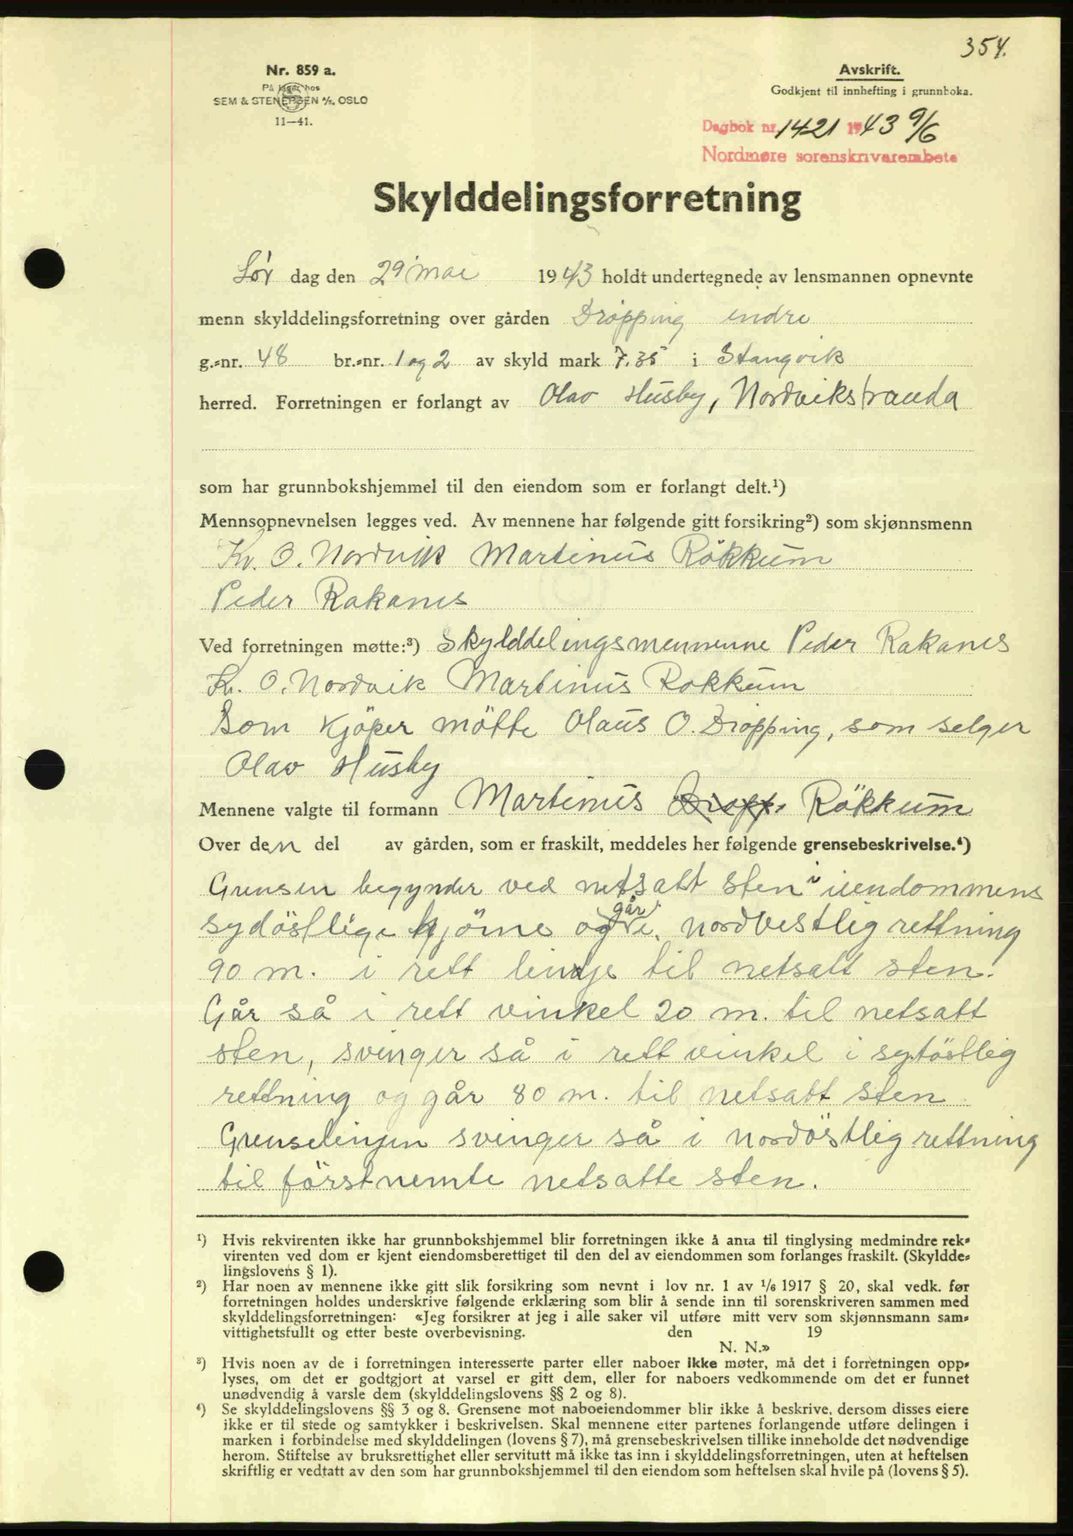 354.
Nr. 859 a.
På lager hos
SEM & STENERSEN A/S, OSLO
11—41.
Avskrift.
Godkjent til innhefting i grunnboka.
Dagbok nr. 1421 1943 9/6
Nordmøre sorenskrivarembete
Skylddelingsforretning
Lør dag den 29 mai 1943 holdt undertegnede av lensmannen opnevnte
menn skylddelingsforretning over gården Drøpping indre
g.-nr. 48 br.-nr. 1 og 2 av skyld mark 7.35 i Stangvik
herred. Forretningen er forlangt av Olav Husby, Nordvikstranda
som har grunnbokshjemmel til den eiendom som er forlangt delt.¹)
Mennsopnevnelsen legges ved. Av mennene har følgende gitt forsikring²) som skjønnsmenn
Kr. O. Nordvik Martinus Røkkum
Peder Rakanes
Ved forretningen møtte:³) Skylddelingsmennene Peder Rakanes
Kr. O. Nordvik Martinus Rokkum
Som kjöper mötte Olaus O. Drøpping, som selger
Olav Husby
Mennene valgte til formann Martinus Røkkum
Over den del av gården, som er fraskilt, meddeles her følgende grensebeskrivelse.⁴)
Grensen begynder ved netsatt sten i iendommens
sydöstlige hjörne og går i nordvestlig rettning
90 m. i rett linje til netsatt sten.
Går så i rett vinkel 20 m. til netsatt
sten, svinger så i rett vinkel i sydöstlig
rettning og går 80 m. til netsatt sten
Grenselinjen svinger så i nordöstlig rettning
til förstnemte netsatte sten.
¹) Hvis rekvirenten ikke har grunnbokshjemmel blir forretningen ikke å anta til tinglysing medmindre rek-
virenten ved dom er kjent eiendomsberettiget til den del av eiendommen som forlanges fraskilt. (Skyldde-
lingslovens § 1).
²) Har noen av mennene ikke gitt slik forsikring som nevnt i lov nr. 1 av 1/6 1917 § 20, skal vedk. før
forretningen holdes underskrive følgende erklæring som blir å sende inn til sorenskriveren sammen med
skylddelingsforretningen: «Jeg forsikrer at jeg i alle saker vil utføre mitt verv som skjønnsmann sam-
vittighetsfullt og etter beste overbevisning. den 19
N. N.»
³) Hvis noen av de i forretningen interesserte parter eller naboer ikke møter, må det i forretningen opp-
lyses, om det er godtgjort at varsel er gitt dem, eller for naboers vedkommende om det er funnet
unødvendig å varsle dem (skylddelingslovens §§ 2 og 8).
⁴) Se skylddelingslovens §§ 3 og 8. Grensene mot naboeiendommer blir ikke å beskrive, dersom disses eiere
ikke er til stede og samtykker i beskrivelsen. Skal mennene etter partenes forlangende utføre delingen i
marken i forbindelse med skylddelingen (lovens § 7), må grensebeskrivelsen tillike inneholde det nødvendige
herom. Stiftelse av bruksrettighet eller servitutt må ikke tas inn i skylddelingsforretningen, uten at heftelsen
skriftlig er vedtatt av den som har grunnbokshjemmel til den eiendom som heftelsen skal hvile på (lovens § 5).